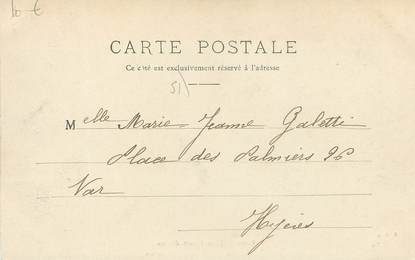 10 €
CARTE POSTALE
Ce côté est exclusivement réservé à l'adresse
51
Melle Marie-Jeanne Galetti
Place des Palmiers 26
Var
Hyères